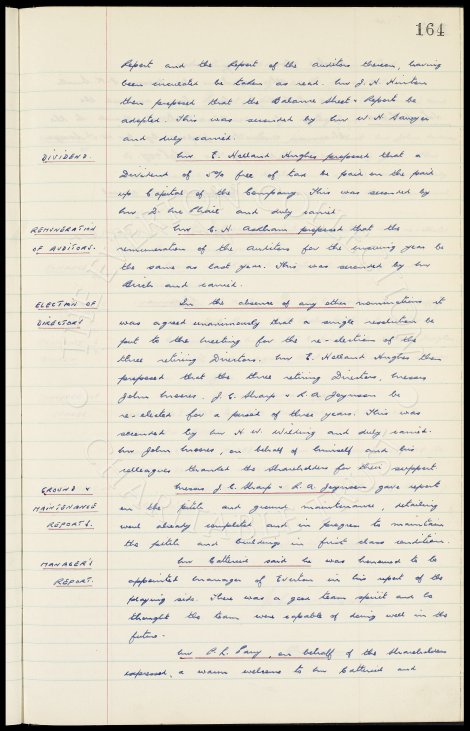 164
Report and the Report of the Auditors thereon, having
been circulated be taken as read. Mr J. H. Hinton
then proposed that the Balance Sheet & Report be
adopted. This was seconded by Mr W. H. Sawyer
and duly carried.
DIVIDEND. Mr E. Holland Hughes proposed that a
Dividend of 5% free of tax be paid on the paid
up Capital of the Company. This was seconded by
Mr D. and duly carried.
REMUNERATION Mr C. H. Askham proposed that the
OF AUDITORS. remuneration of the Auditors for the ensuing year be
the same as last year. This was seconded by Mr
Birch and carried.
ELECTION OF In the absence of any other nominations it
DIRECTORS was agreed unanimously that a single resolution be
put to the meeting for the re-election of the
three retiring Directors. Mr E. Holland Hughes then
proposed that the three retiring Directors, Messrs
John Moores, J. C. Sharp & R. A. Joynson be
re-elected for a period of three years. This was
seconded by Mr H. W. Wilding and duly carried.
Mr John Moores, on behalf of himself and his
colleagues thanked the Shareholders for their support
GROUND & Messrs J. C. Sharp & R. A. Joynson gave report
MAINTENANCE on the pitch and ground maintenance, detailing
REPORTS. work already completed and in progress to maintain
the pitch and buildings in first class condition.
MANAGER'S Mr Catterick said he was honoured to be
REPORT. appointed Manager of Everton in his report of the
playing side. There was a good team spirit and he
thought the team were capable of doing well in the
future.
Mr P. L. Parry, on behalf of the Shareholders
expressed, a warm welcome to Mr Catterick and